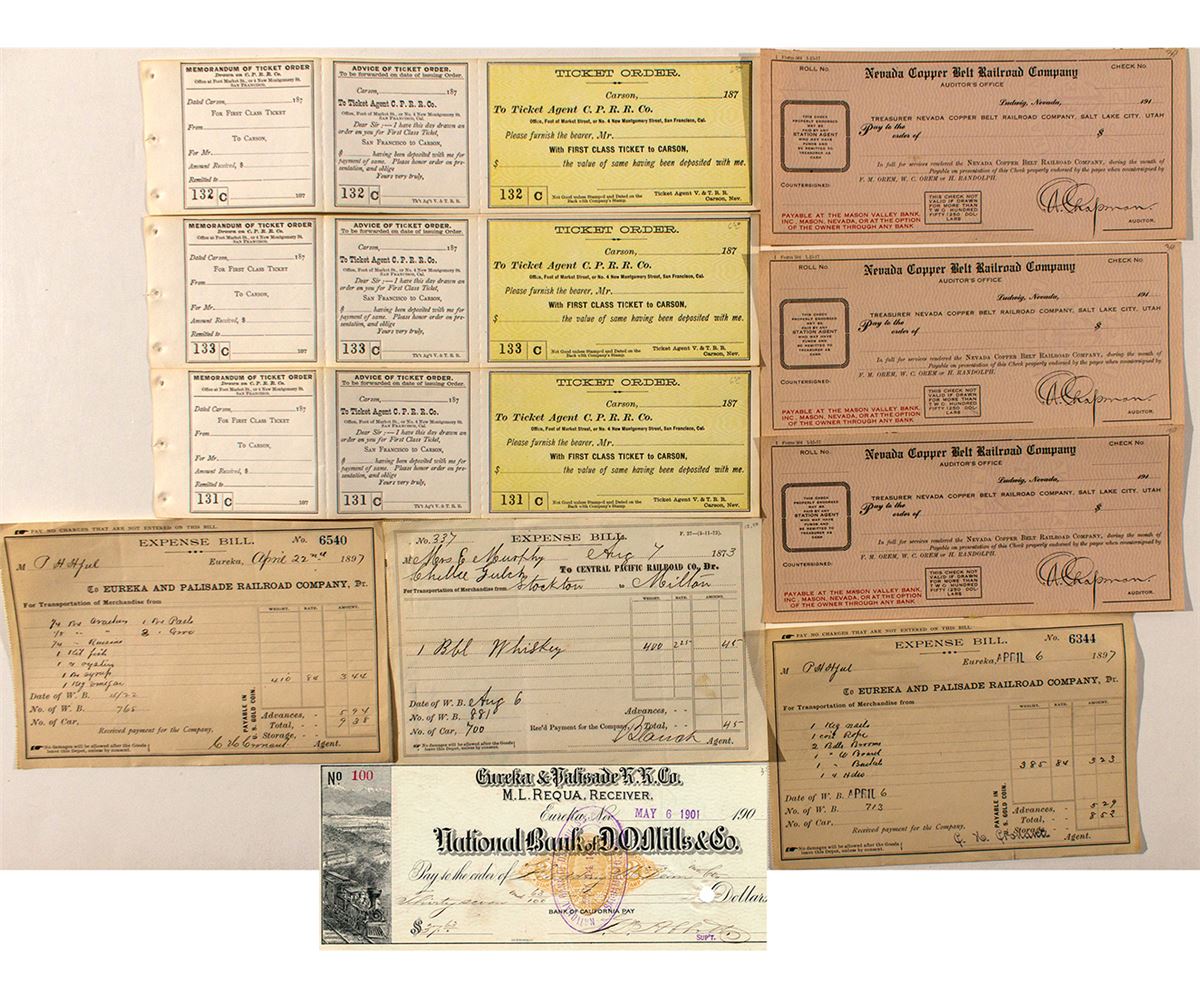 MEMORANDUM OF TICKET ORDER
Drawn on C. P. R. R. Co.
Office at Foot Market St., or 4 New Montgomery St.
SAN FRANCISCO.
Dated Carson, 187
FOR FIRST CLASS TICKET
From
TO CARSON,
For Mr.
Amount Received, $
Remitted to
132 C 187
ADVICE OF TICKET ORDER.
To be forwarded on date of issuing Order.
Carson, 187
To Ticket Agent C. P. R. R. Co.
Office, Foot of Market Street, or No. 4 New Montgomery St.
SAN FRANCISCO, Cal.
Dear Sir:—I have this day drawn an
order on you for First Class Ticket,
SAN FRANCISCO to CARSON,
$ having been deposited with me for
payment of same. Please honor order on pre-
sentation, and oblige
Yours very truly,
132 C Tk't Ag't V. & T. R. R.
TICKET ORDER.
Carson, 187
To Ticket Agent C. P. R. R. Co.
Office, Foot of Market Street, or No. 4 New Montgomery Street, San Francisco, Cal.
Please furnish the bearer, Mr.
With FIRST CLASS TICKET to CARSON,
$ the value of same having been deposited with me.
132 C Not Good unless Stamped and Dated on the
Back with Company's Stamp.
Ticket Agent V. & T. R. R.
Carson, Nev.
MEMORANDUM OF TICKET ORDER
Drawn on C. P. R. R. Co.
Office at Foot Market St., or 4 New Montgomery St.
SAN FRANCISCO.
Dated Carson, 187
FOR FIRST CLASS TICKET
From
TO CARSON,
For Mr.
Amount Received, $
Remitted to
133 C 187
ADVICE OF TICKET ORDER.
To be forwarded on date of issuing Order.
Carson, 187
To Ticket Agent C. P. R. R. Co.
Office, Foot of Market Street, or No. 4 New Montgomery St.
SAN FRANCISCO, Cal.
Dear Sir:—I have this day drawn an
order on you for First Class Ticket,
SAN FRANCISCO to CARSON,
$ having been deposited with me for
payment of same. Please honor order on pre-
sentation, and oblige
Yours very truly,
133 C Tk't Ag't V. & T. R. R.
TICKET ORDER.
Carson, 187
To Ticket Agent C. P. R. R. Co.
Office, Foot of Market Street, or No. 4 New Montgomery Street, San Francisco, Cal.
Please furnish the bearer, Mr.
With FIRST CLASS TICKET to CARSON,
$ the value of same having been deposited with me.
133 C Not Good unless Stamped and Dated on the
Back with Company's Stamp.
Ticket Agent V. & T. R. R.
Carson, Nev.
MEMORANDUM OF TICKET ORDER
Drawn on C. P. R. R. Co.
Office at Foot Market St., or 4 New Montgomery St.
SAN FRANCISCO.
Dated Carson, 187
FOR FIRST CLASS TICKET
From
TO CARSON,
For Mr.
Amount Received, $
Remitted to
131 C 187
ADVICE OF TICKET ORDER.
To be forwarded on date of issuing Order.
Carson, 187
To Ticket Agent C. P. R. R. Co.
Office, Foot of Market Street, or No. 4 New Montgomery St.
SAN FRANCISCO, Cal.
Dear Sir:—I have this day drawn an
order on you for First Class Ticket,
SAN FRANCISCO to CARSON,
$ having been deposited with me for
payment of same. Please honor order on pre-
sentation, and oblige
Yours very truly,
131 C Tk't Ag't V. & T. R. R.
TICKET ORDER.
Carson, 187
To Ticket Agent C. P. R. R. Co.
Office, Foot of Market Street, or No. 4 New Montgomery Street, San Francisco, Cal.
Please furnish the bearer, Mr.
With FIRST CLASS TICKET to CARSON,
$ the value of same having been deposited with me.
131 C Not Good unless Stamped and Dated on the
Back with Company's Stamp.
Ticket Agent V. & T. R. R.
Carson, Nev.
ROLL NO. Nevada Copper Belt Railroad Company CHECK NO.
AUDITOR'S OFFICE
Ludwig, Nevada, 191
TREASURER NEVADA COPPER BELT RAILROAD COMPANY, SALT LAKE CITY, UTAH
Pay to the
order of $
THIS CHECK
PROPERLY ENDORSED
MAY BE
PAID BY ANY
STATION AGENT
WHO MAY HAVE
FUNDS AND
BE REMITTED TO
TREASURER AS
CASH
In full for services rendered the NEVADA COPPER BELT RAILROAD COMPANY, during the month of
Payable on presentation of this Check properly endorsed by the payee when countersigned by
F. M. OREM, W. C. OREM or H. RANDOLPH.
COUNTERSIGNED:
PAYABLE AT THE MASON VALLEY BANK,
INC. MASON, NEVADA, OR AT THE OPTION
OF THE OWNER THROUGH ANY BANK
THIS CHECK NOT
VALID IF DRAWN
FOR MORE THAN
TWO HUNDRED
FIFTY (250) DOL-
LARS
A. Chapman.
AUDITOR.
ROLL NO. Nevada Copper Belt Railroad Company CHECK NO.
AUDITOR'S OFFICE
Ludwig, Nevada, 191
TREASURER NEVADA COPPER BELT RAILROAD COMPANY, SALT LAKE CITY, UTAH
Pay to the
order of $
THIS CHECK
PROPERLY ENDORSED
MAY BE
PAID BY ANY
STATION AGENT
WHO MAY HAVE
FUNDS AND
BE REMITTED TO
TREASURER AS
CASH
In full for services rendered the NEVADA COPPER BELT RAILROAD COMPANY, during the month of
Payable on presentation of this Check properly endorsed by the payee when countersigned by
F. M. OREM, W. C. OREM or H. RANDOLPH.
COUNTERSIGNED:
PAYABLE AT THE MASON VALLEY BANK,
INC. MASON, NEVADA, OR AT THE OPTION
OF THE OWNER THROUGH ANY BANK
THIS CHECK NOT
VALID IF DRAWN
FOR MORE THAN
TWO HUNDRED
FIFTY (250) DOL-
LARS
A. Chapman.
AUDITOR.
ROLL NO. Nevada Copper Belt Railroad Company CHECK NO.
AUDITOR'S OFFICE
Ludwig, Nevada, 191
TREASURER NEVADA COPPER BELT RAILROAD COMPANY, SALT LAKE CITY, UTAH
Pay to the
order of $
THIS CHECK
PROPERLY ENDORSED
MAY BE
PAID BY ANY
STATION AGENT
WHO MAY HAVE
FUNDS AND
BE REMITTED TO
TREASURER AS
CASH
In full for services rendered the NEVADA COPPER BELT RAILROAD COMPANY, during the month of
Payable on presentation of this Check properly endorsed by the payee when countersigned by
F. M. OREM, W. C. OREM or H. RANDOLPH.
COUNTERSIGNED:
PAYABLE AT THE MASON VALLEY BANK,
INC. MASON, NEVADA, OR AT THE OPTION
OF THE OWNER THROUGH ANY BANK
THIS CHECK NOT
VALID IF DRAWN
FOR MORE THAN
TWO HUNDRED
FIFTY (250) DOL-
LARS
A. Chapman.
AUDITOR.
PAY NO CHARGES THAT ARE NOT ENTERED ON THIS BILL.
EXPENSE BILL. No. 6540
M P H Hjul Eureka, April 22nd 1897
To EUREKA AND PALISADE RAILROAD COMPANY, Dr.
For Transportation of Merchandise from
WEIGHT. RATE. AMOUNT.
1 Kit fish
1 Bx Syrup
1 Keg vinegar
410 84 3 44
Date of W. B. 4/22
No. of W. B. 765
No. of Car.
PAYABLE IN
U. S. GOLD COIN.
Advances, 5 94
Total, 9 38
Storage,
Received payment for the Company,
Agent.
No damages will be allowed after the Goods
leave this Depot, unless by consent.
No. 337 EXPENSE BILL. F. 27—(3-11-73).
M Mrs E Murphy Aug 7 1873
To CENTRAL PACIFIC RAILROAD CO., Dr.
For Transportation of Merchandise from Stockton to Milton
WEIGHT. RATE. AMOUNT.
1 Bbl Whiskey 400 2 25 45
Date of W. B. Aug 6
No. of W. B. 881
No. of Car 700
Advances,
Rec'd Payment for the Company, Total, 45
Agent.
No damages will be allowed after the Goods
leave this Depot, unless by consent.
PAY NO CHARGES THAT ARE NOT ENTERED ON THIS BILL.
EXPENSE BILL. No. 6344
M P H Hjul Eureka, APRIL 6 1897
To EUREKA AND PALISADE RAILROAD COMPANY, Dr.
For Transportation of Merchandise from
WEIGHT. RATE. AMOUNT.
1 Keg nails
1 coil Rope
2 Bdls Brooms
1 " W Board
385 84 3 23
Date of W. B. APRIL 6
No. of W. B. 713
No. of Car.
PAYABLE IN
U. S. GOLD COIN.
Advances, 5 29
Total, 8 52
Storage,
Received payment for the Company,
Agent.
No damages will be allowed after the Goods
leave this Depot, unless by consent.
No 100
Eureka & Palisade R.R. Co.
M. L. REQUA, RECEIVER.
Eureka, Nev. MAY 6 1901 190
National Bank of D.O. Mills & Co.
Pay to the order of
Thirty seven and 63/100 Dollars
BANK OF CALIFORNIA PAY
$37.63
SUP'T.